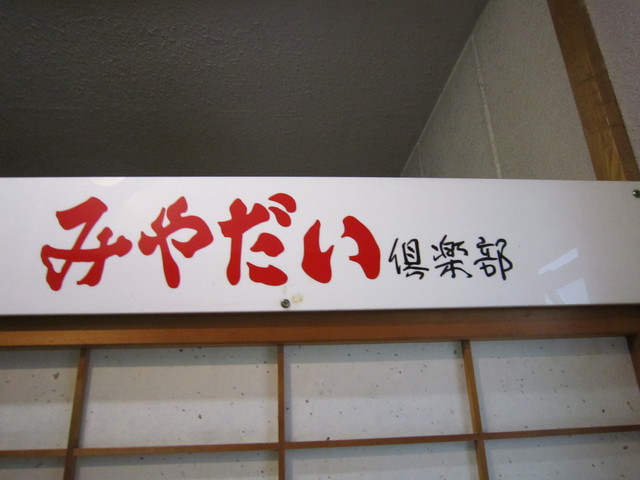 みやだい倶楽部